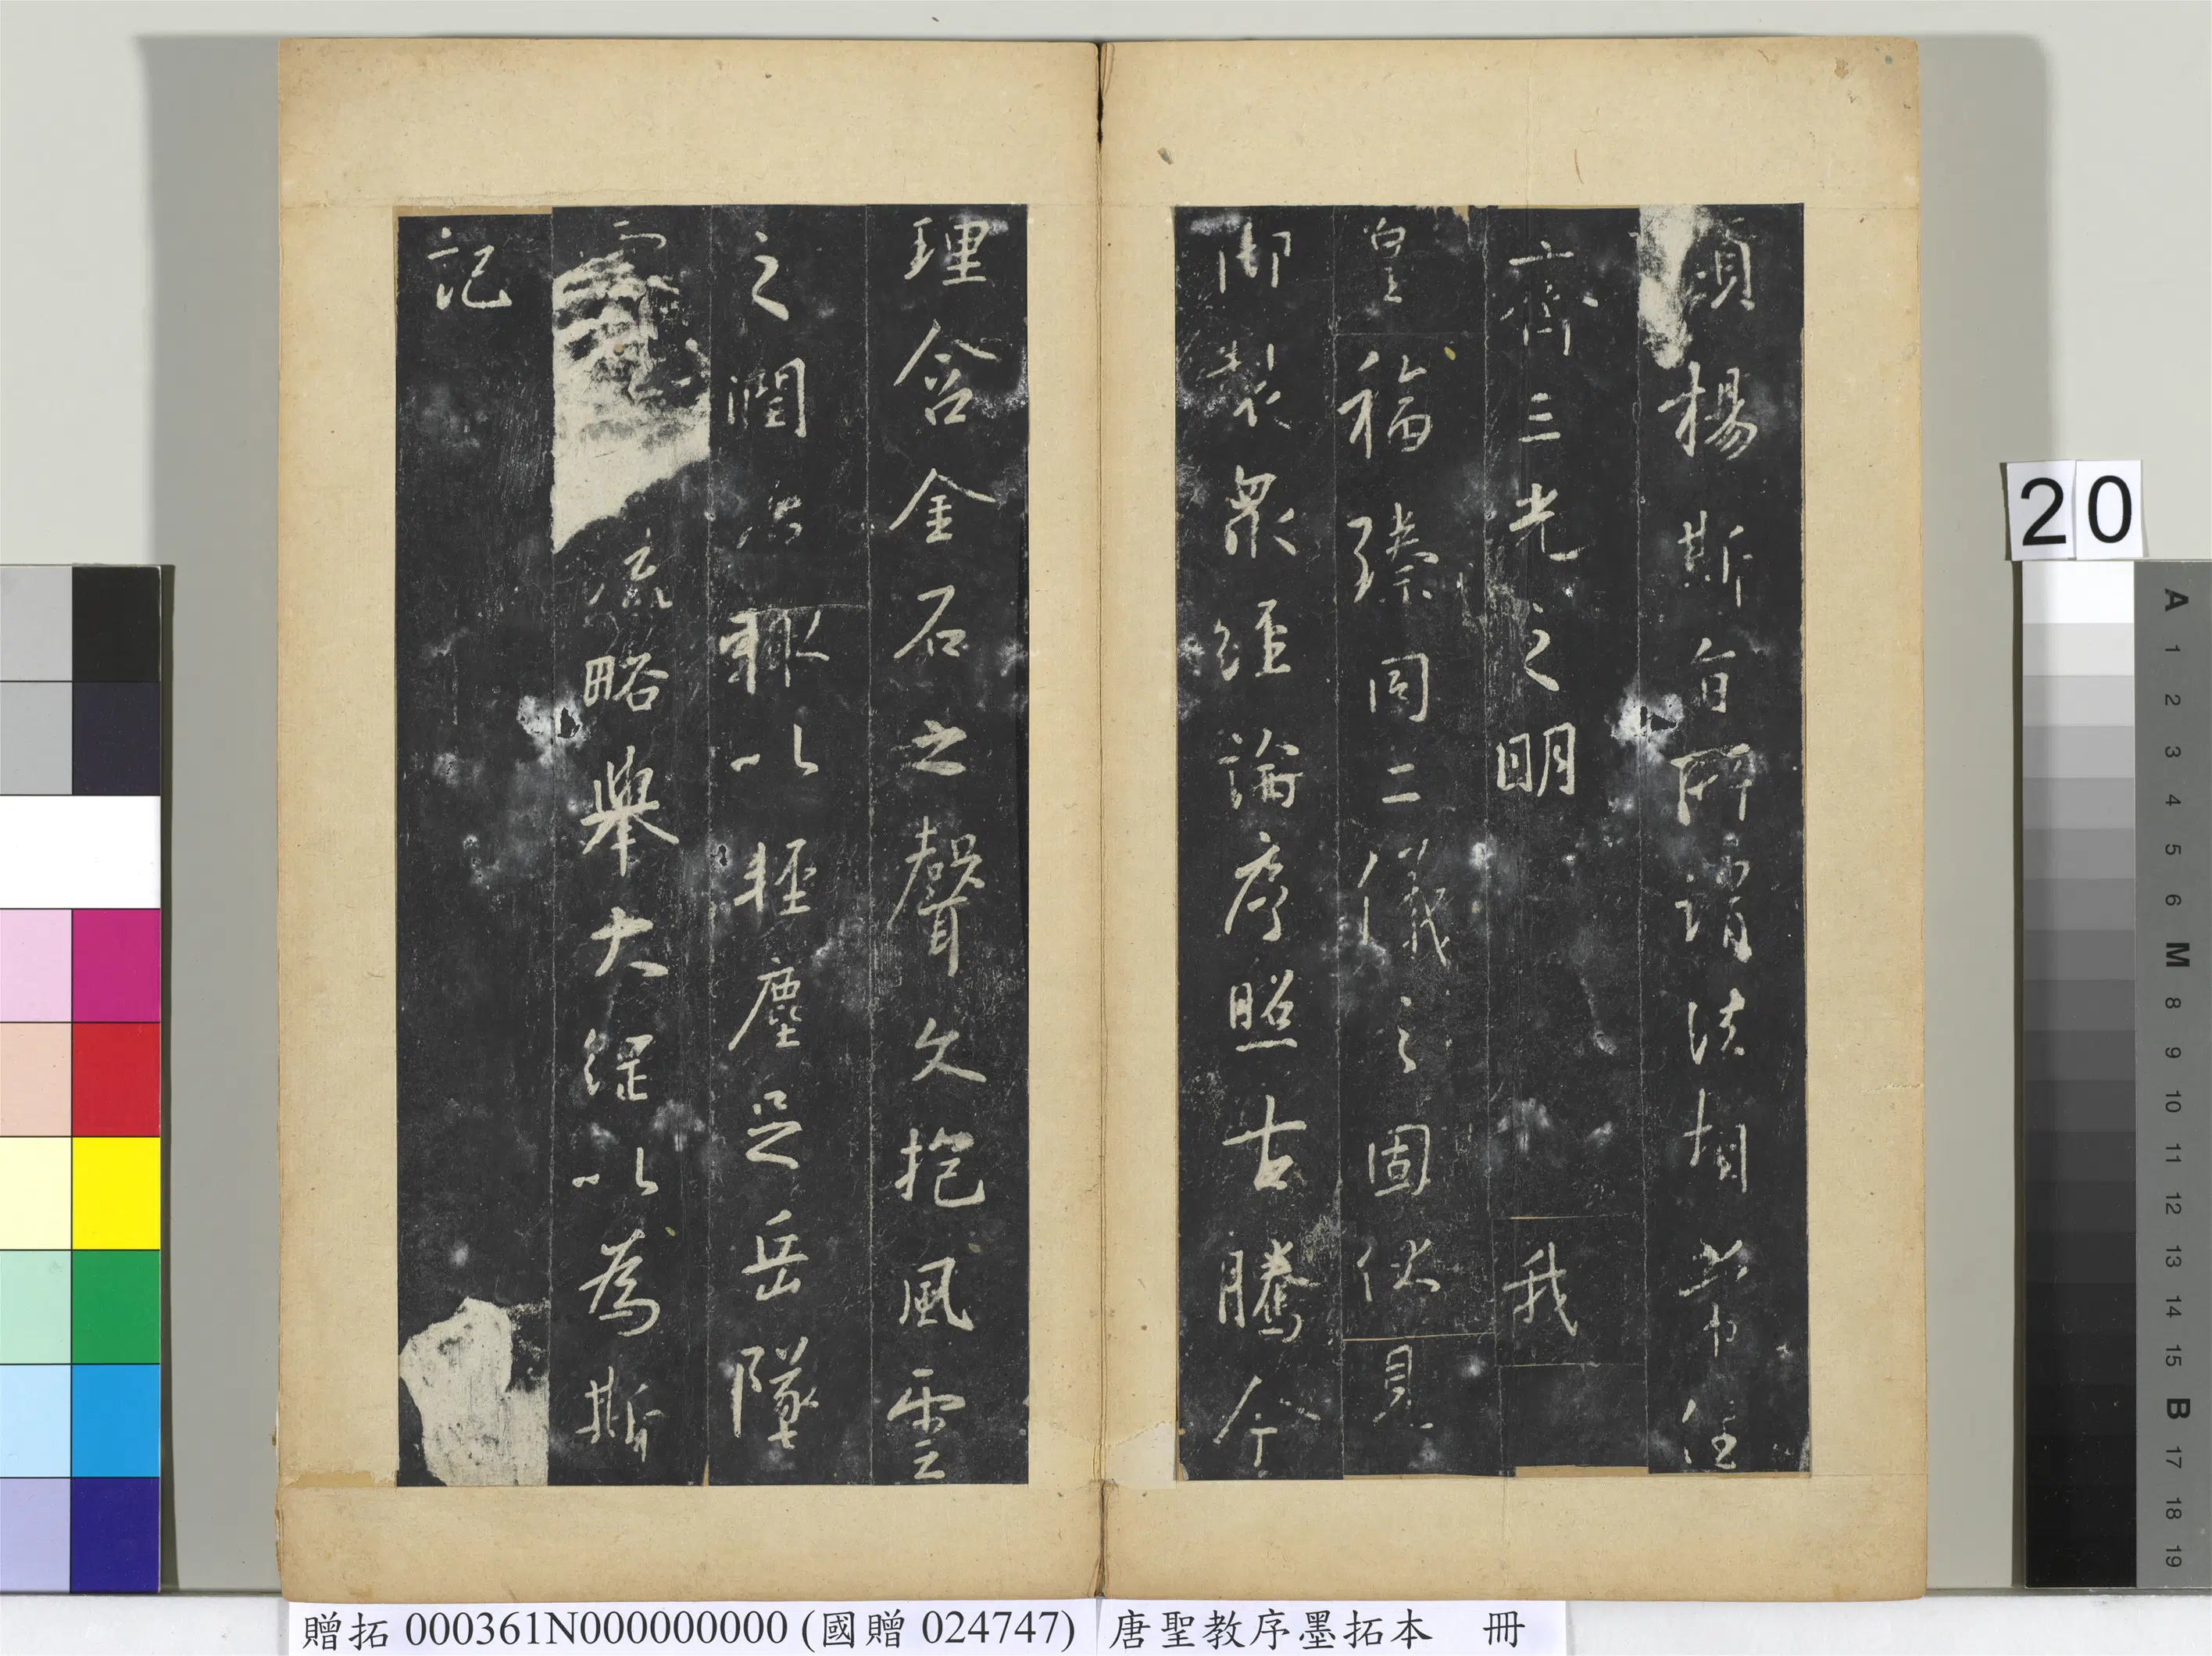 須楊斯旨所謂法相常住
齊三光之明 我
皇福臻同二儀之固伏見
御製眾經論序照古騰今
理含金石之聲文抱風雲
之潤治輒以輕塵足岳墜
露 流略舉大綱以為斯
記
20
A
1
2
3
4
5
6
M
8
9
10
11
12
13
14
15
B
17
18
19
贈拓 000361N000000000 (國贈 024747) 唐聖教序墨拓本 冊